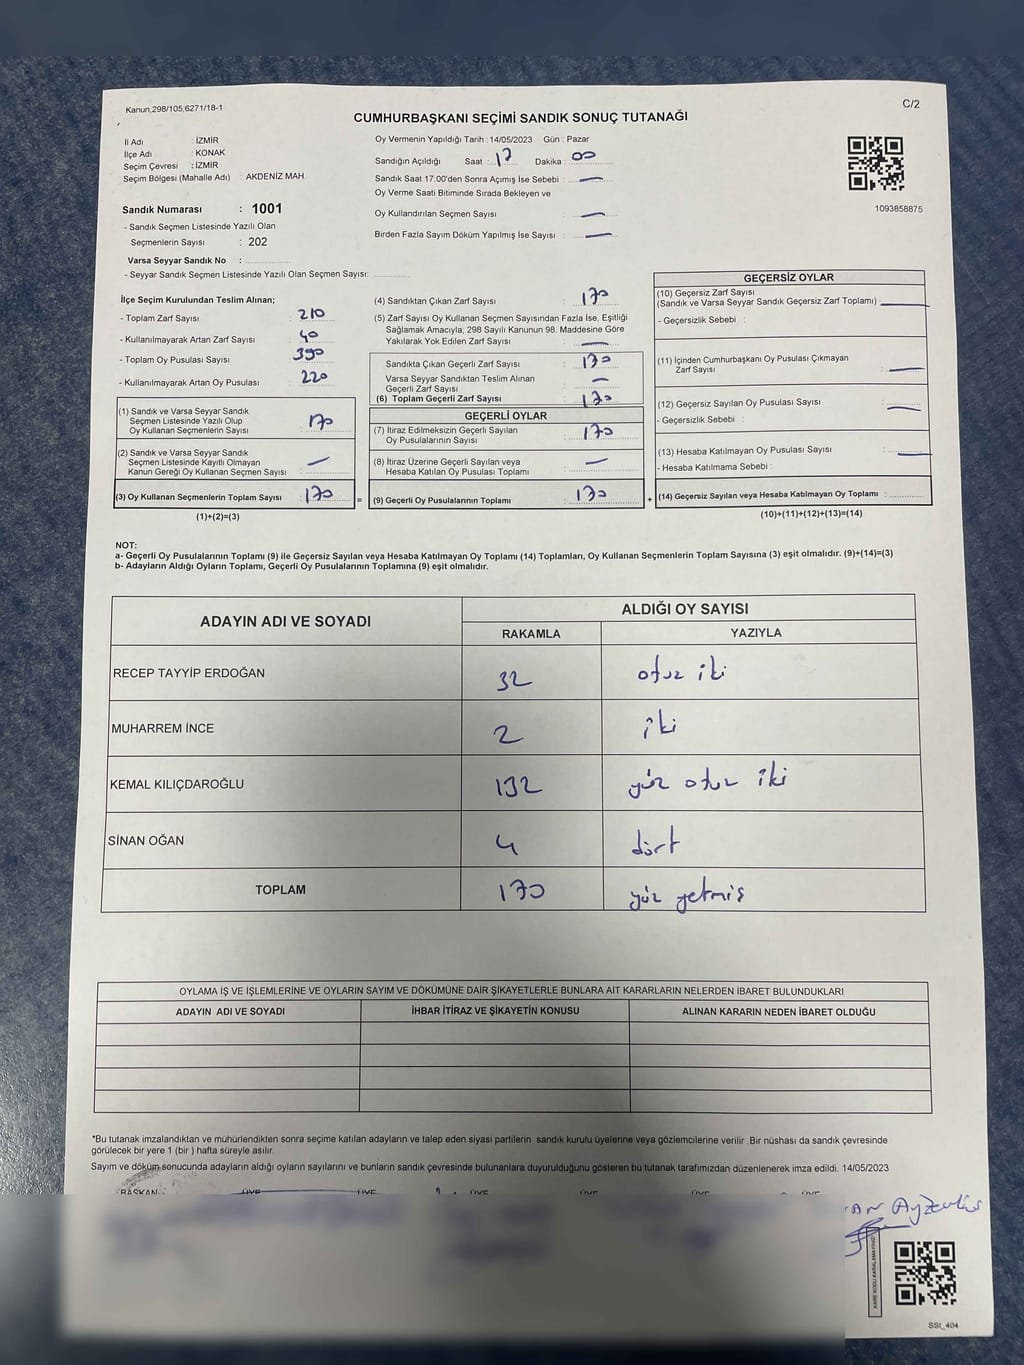 Kanun,298/105,6271/18-1
C/2
CUMHURBAŞKANI SEÇİMİ SANDIK SONUÇ TUTANAĞI
İl Adı : İZMİR
İlçe Adı : KONAK
Seçim Çevresi : İZMİR
Seçim Bölgesi (Mahalle Adı) : AKDENİZ MAH.
Sandık Numarası : 1001
- Sandık Seçmen Listesinde Yazılı Olan
Seçmenlerin Sayısı : 202
Varsa Seyyar Sandık No :
- Seyyar Sandık Seçmen Listesinde Yazılı Olan Seçmen Sayısı:
Oy Vermenin Yapıldığı Tarih : 14/05/2023 Gün : Pazar
Sandığın Açıldığı Saat : 17 Dakika : 00
Sandık Saat 17:00'den Sonra Açımış İse Sebebi : —
Oy Verme Saati Bitiminde Sırada Bekleyen ve
Oy Kullandırılan Seçmen Sayısı : —
Birden Fazla Sayım Döküm Yapılmış İse Sayısı : —
1093858875
İlçe Seçim Kurulundan Teslim Alınan;
- Toplam Zarf Sayısı : 210
- Kullanılmayarak Artan Zarf Sayısı : 40
- Toplam Oy Pusulası Sayısı : 390
- Kullanılmayarak Artan Oy Pusulası : 220
(1) Sandık ve Varsa Seyyar Sandık
Seçmen Listesinde Yazılı Olup
Oy Kullanan Seçmenlerin Sayısı : 170
(2) Sandık ve Varsa Seyyar Sandık
Seçmen Listesinde Kayıtlı Olmayan
Kanun Gereği Oy Kullanan Seçmen Sayısı : —
(3) Oy Kullanan Seçmenlerin Toplam Sayısı : 170
(1)+(2)=(3)
(4) Sandıktan Çıkan Zarf Sayısı : 170
(5) Zarf Sayısı Oy Kullanan Seçmen Sayısından Fazla İse, Eşitliği
Sağlamak Amacıyla, 298 Sayılı Kanunun 98. Maddesine Göre
Yakılarak Yok Edilen Zarf Sayısı : —
Sandıkta Çıkan Geçerli Zarf Sayısı : 170
Varsa Seyyar Sandıktan Teslim Alınan
Geçerli Zarf Sayısı : —
(6) Toplam Geçerli Zarf Sayısı : 170
GEÇERLİ OYLAR
(7) İtiraz Edilmeksizin Geçerli Sayılan
Oy Pusulalarının Sayısı : 170
(8) İtiraz Üzerine Geçerli Sayılan veya
Hesaba Katılan Oy Pusulası Toplamı : —
= (9) Geçerli Oy Pusulalarının Toplamı : 170
GEÇERSİZ OYLAR
(10) Geçersiz Zarf Sayısı
(Sandık ve Varsa Seyyar Sandık Geçersiz Zarf Toplamı) : —
- Geçersizlik Sebebi :
(11) İçinden Cumhurbaşkanı Oy Pusulası Çıkmayan
Zarf Sayısı : —
(12) Geçersiz Sayılan Oy Pusulası Sayısı : —
- Geçersizlik Sebebi :
(13) Hesaba Katılmayan Oy Pusulası Sayısı : —
- Hesaba Katılmama Sebebi :
+ (14) Geçersiz Sayılan veya Hesaba Katılmayan Oy Toplamı :
(10)+(11)+(12)+(13)=(14)
NOT:
a- Geçerli Oy Pusulalarının Toplamı (9) ile Geçersiz Sayılan veya Hesaba Katılmayan Oy Toplamı (14) Toplamları, Oy Kullanan Seçmenlerin Toplam Sayısına (3) eşit olmalıdır. (9)+(14)=(3)
b- Adayların Aldığı Oyların Toplamı, Geçerli Oy Pusulalarının Toplamına (9) eşit olmalıdır.
ADAYIN ADI VE SOYADI ALDIĞI OY SAYISI
RAKAMLA YAZIYLA
RECEP TAYYİP ERDOĞAN 32 otuz iki
MUHARREM İNCE 2 iki
KEMAL KILIÇDAROĞLU 132 yüz otuz iki
SİNAN OĞAN 4 dört
TOPLAM 170 yüz yetmiş
OYLAMA İŞ VE İŞLEMLERİNE VE OYLARIN SAYIM VE DÖKÜMÜNE DAİR ŞİKAYETLERLE BUNLARA AİT KARARLARIN NELERDEN İBARET BULUNDUKLARI
ADAYIN ADI VE SOYADI İHBAR İTİRAZ VE ŞİKAYETİN KONUSU ALINAN KARARIN NEDEN İBARET OLDUĞU
*Bu tutanak imzalandıktan ve mühürlendikten sonra seçime katılan adayların ve talep eden siyasi partilerin sandık kurulu üyelerine veya gözlemcilerine verilir .Bir nüshası da sandık çevresinde
görülecek bir yere 1 (bir ) hafta süreyle asılır.
Sayım ve döküm sonucunda adayların aldığı oyların sayılarını ve bunların sandık çevresinde bulunanlara duyurulduğunu gösteren bu tutanak tarafımızdan düzenlenerek imza edildi. 14/05/2023
BAŞKAN ÜYE ÜYE ÜYE ÜYE ÜYE ÜYE
SSI_404